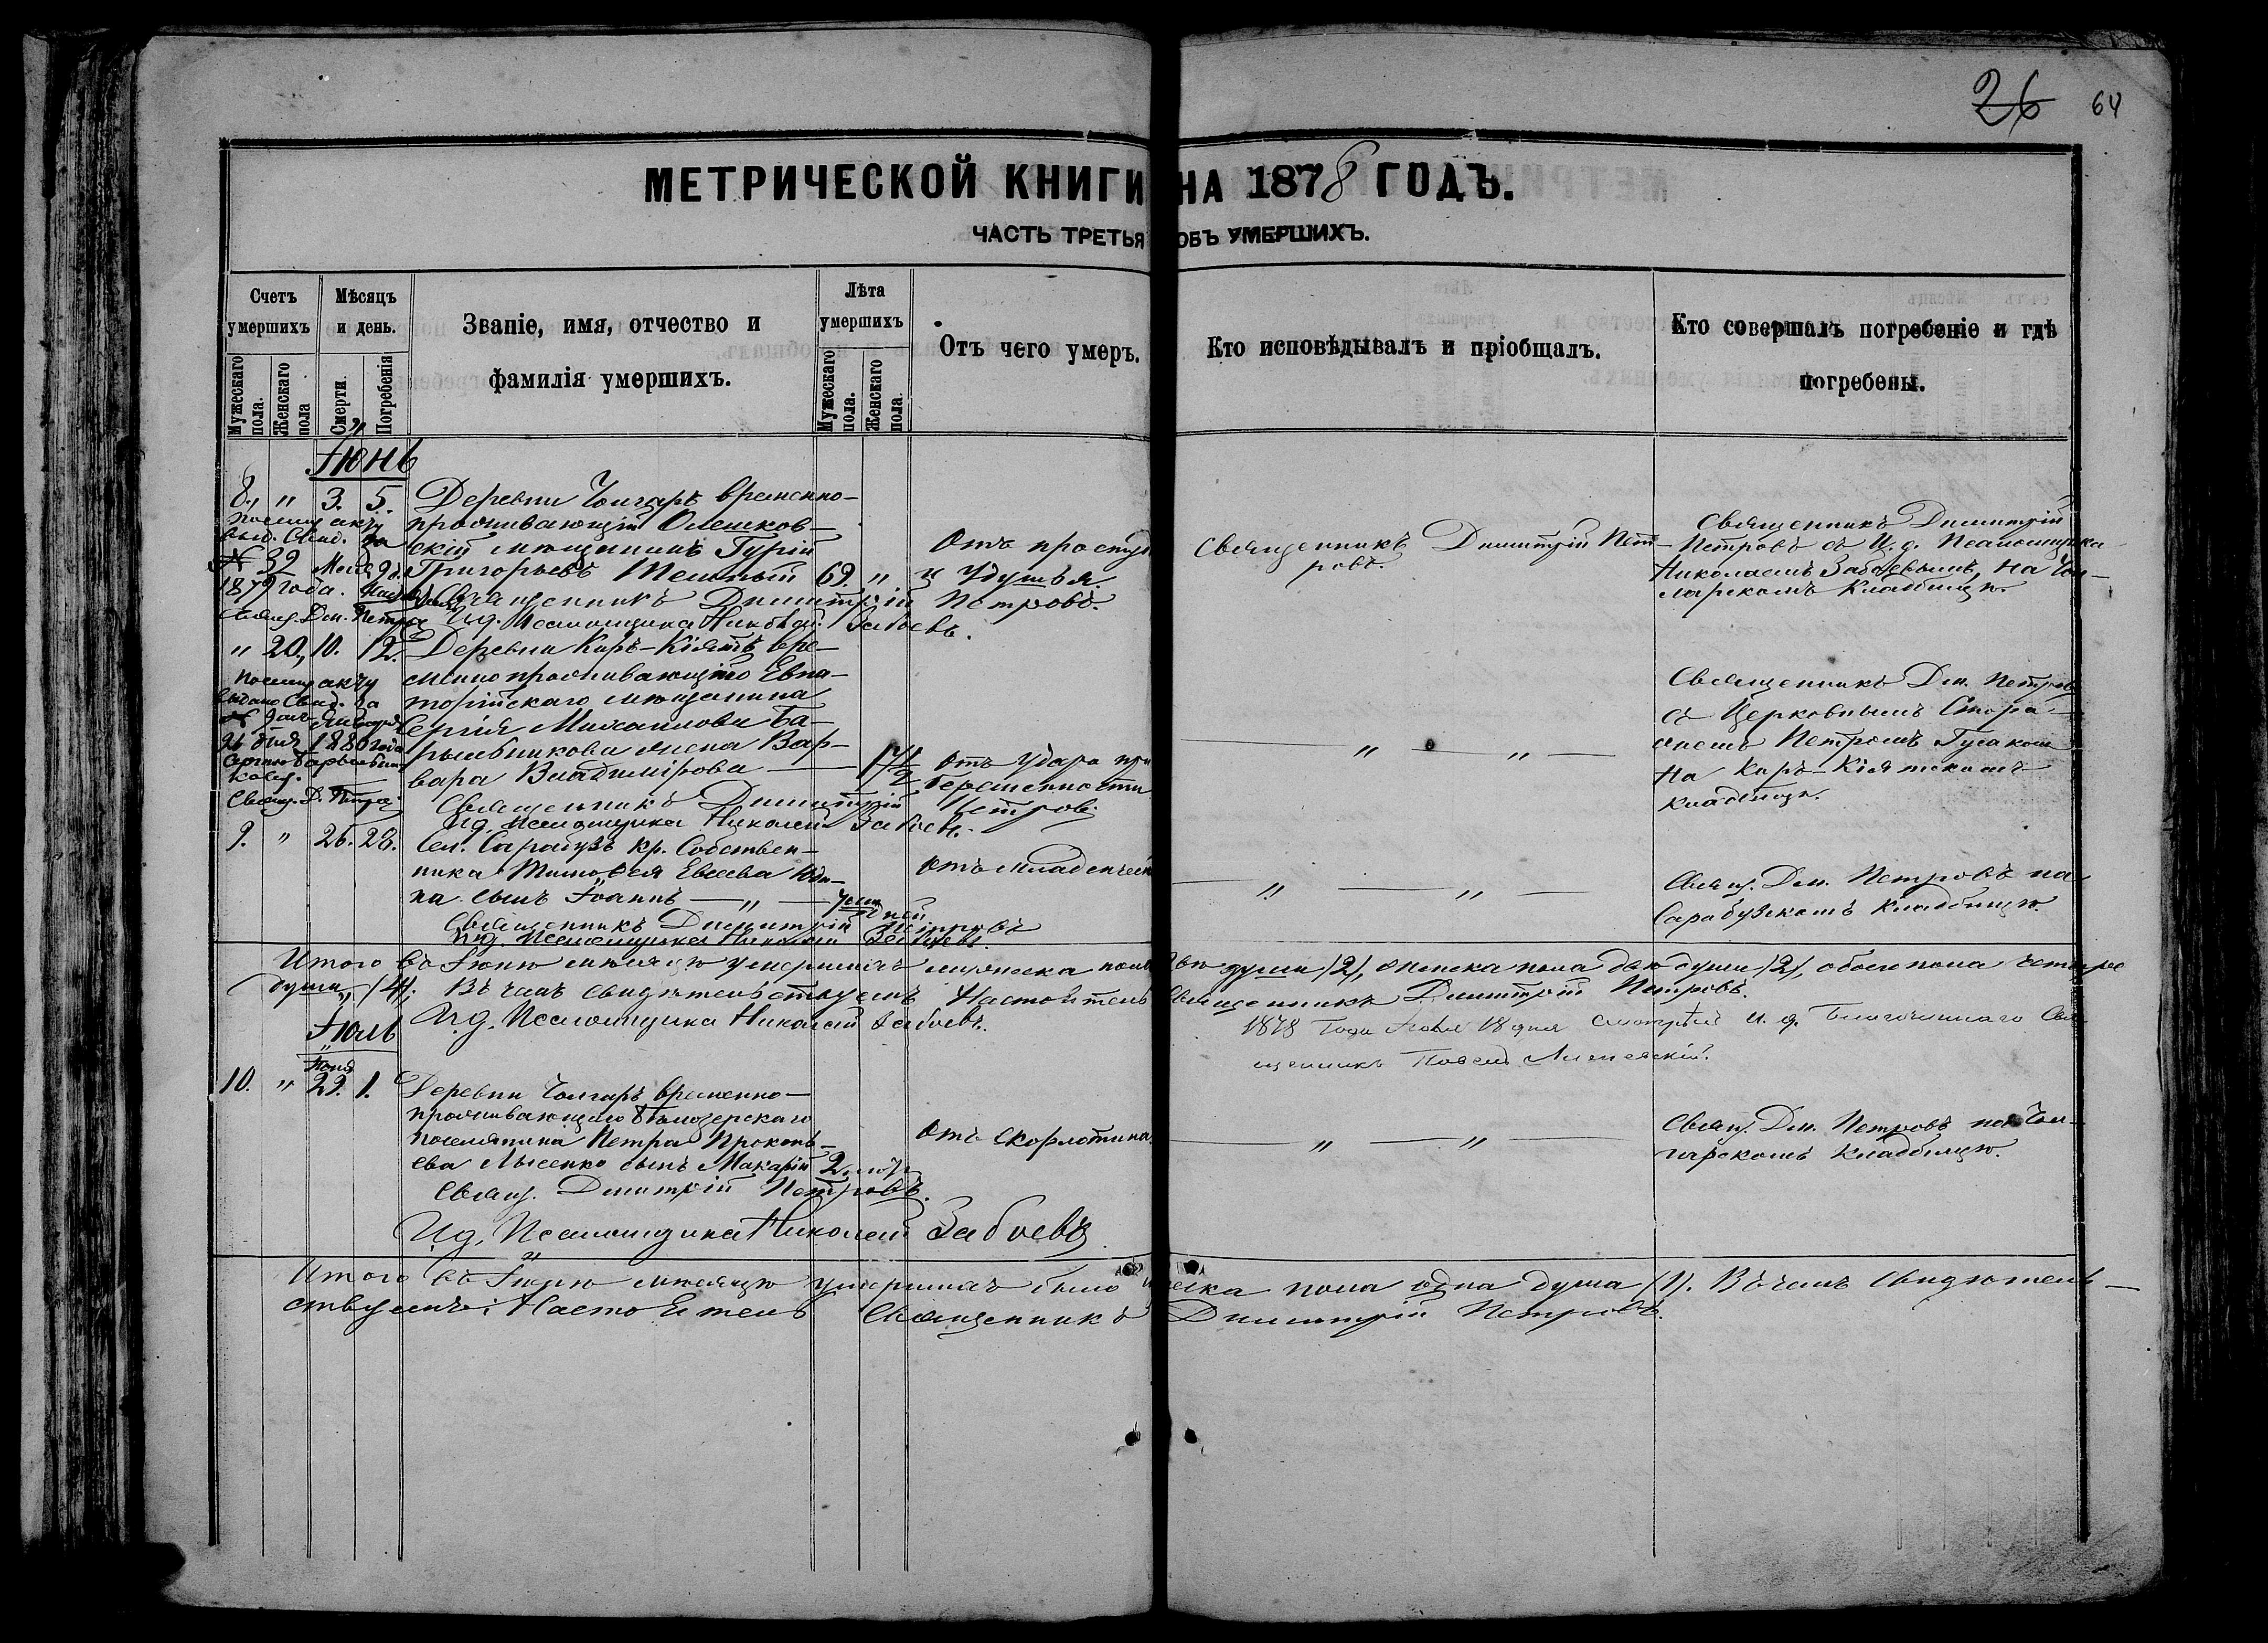 26 64
МЕТРИЧЕСКОЙ КНИГИ НА 1878 ГОДЪ.
ЧАСТЬ ТРЕТЬЯ ОБЪ УМЕРШИХЪ.
Счетъ умершихъ
Мужескаго пола.
Женскаго пола
Мѣсяцъ и день.
Смерти.
Погребенія
Званіе, имя, отчество и
фамилія умершихъ.
Лѣта умершихъ
Мужескаго пола.
Женскаго пола.
Отъ чего умеръ.
Кто исповѣдывалъ и пріобщалъ.
Кто совершалъ погребеніе и гдѣ
погребены.
Іюнь
8. " 3. 5.
По сему акту
выд. Свид. за
№ 32
1879 года.
Свящ. Дм. Петр
Деревни Чонгаръ временно-
проживающій Олешков-
скій мѣщанинъ Гурій
Григорьевъ 69. "
Священникъ Димитрій Петровъ.
И.д. Псаломщика Николай Забоевъ.
Отъ простуд
и удушья.
Священникъ Димитрій Пет-
ровъ.
Священникъ Димитрій
Петровъ съ И.д. Псаломщика
Николаемъ Забоевымъ, на Чон-
гарскомъ Кладбищѣ.
" 20. 10. 12.
По сему акту
выдано Свид. за
1880 года
Свящ. Д. Петро
Деревни Каръ-Кіятъ вре-
менно проживающаго Евпа-
торійскаго мѣщанина
Сергія Михаилова Ба-
рыбникова жена Вар-
вара Владимірова
Священникъ Димитрій Петровъ
И.д. Псаломщика Николай Забоевъ.
Отъ удара при
беременности
" — " —
Священникъ Дм. Петровъ
съ Церковнымъ Сторо-
жемъ Петромъ Гусаком
на Каръ-Кіятскомъ
кладбищѣ.
9. " 26. 28.
Сел. Сарабузъ кр. Собствен-
ника Тимоѳея Евсеева
на сынъ Іоаннъ — " —
дней
Священникъ Димитрій Петровъ
И.д. Псаломщика Николай Забоевъ.
Отъ младенческ
" — " —
Свящ. Дм. Петровъ на
Сарабузскомъ Кладбищѣ.
Итого въ Іюнѣ мѣсяцѣ умершихъ мужеска пола двѣ души /2/, женска пола двѣ души /2/, обоего пола четыре
души /4/. Въ чемъ свидѣтельствуемъ: Настоятель Священникъ Димитрій Петровъ.
И.д. Псаломщика Николай Забоевъ.
1878 года Іюля 18 дня смотрѣлъ И. д. Благочиннаго Свя-
щенникъ Павелъ
Іюль
Іюня
10. " 29. 1.
Деревни Чонгаръ временно-
проживающаго Бѣлозерскаго
поселянина Петра Прокопь-
ева Лысенко сынъ Макарій 2
Свящ. Димитрій Петровъ.
И.д. Псаломщика Николай Забоевъ
Отъ скорлотина.
" — " —
Свящ. Дм. Петровъ на Чон-
гарскомъ Кладбищѣ.
Итого въ Іюлѣ мѣсяцѣ умершихъ было мужеска пола одна душа /1/. Въ чемъ свидѣтель-
ствуемъ: Настоятель Священникъ Димитрій Петровъ.